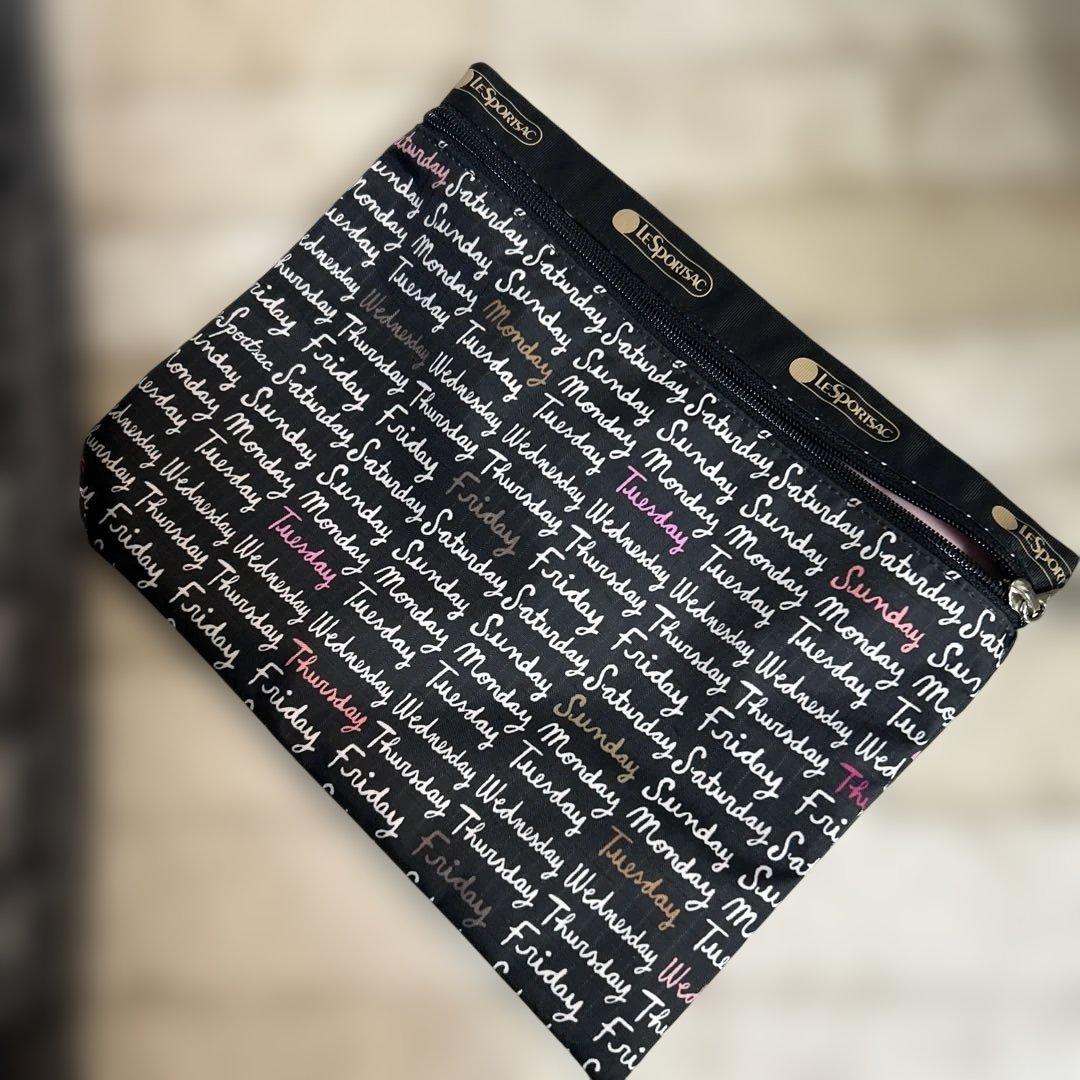 LeSportsac LeSportsac LeSportsac LeSpor
aturday Saturday Saturday Saturday Saturday Saturday Saturday Sat
unday Sunday Sunday Sunday Sunday Sunday Sunday Sun
onday Monday Monday Monday Monday Monday Monday Mo
uesday Tuesday Tuesday Tuesday Tuesday Tuesday Tuesday Tue
ednesday Wednesday Wednesday Wednesday Wednesday Wednesday Wednesday Wed
hursday Thursday Thursday Thursday Thursday Thursday Thursday Thu
riday Friday Friday Friday Friday Friday Friday Fri
Sportsac Saturday Saturday Saturday Saturday Saturday Saturday Sat
unday Sunday Sunday Sunday Sunday Sunday Sunday Su
onday Monday Monday Monday Monday Monday Monday M
uesday Tuesday Tuesday Tuesday Tuesday Tuesday Tuesday Tue
dnesday Wednesday Wednesday Wednesday Wednesday Wednesday Wednesday Wed
ursday Thursday Thursday Thursday Thursday Thursday Thursday Th
y Friday Friday Friday Friday Friday Friday Fri